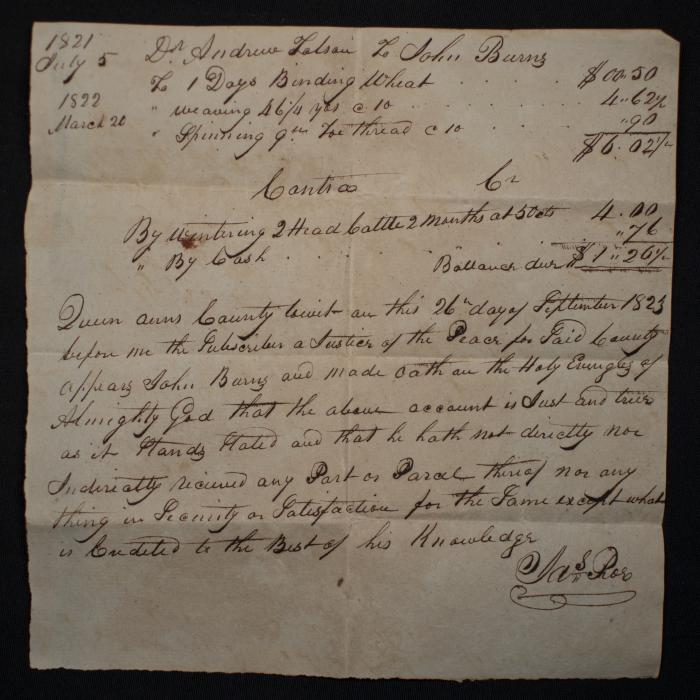 1821
July 5 Dr Andrew Tolson To John Burns
To 1 Days Binding Wheat $00.50
1822
March 20 " weaving 46¼ yds c 10 4"62½
" Spinning 9 Toe thread c 10 "90
$6.02½
Contra Cr
By wintering 2 Head Cattle 2 Months at 50 cts 4.00
" By Cash "76
Ballance due $1"26½
Queen anns County towit on this 26th day of September 1823
before me the Subscriber a Justice of the Peace for Said County
appears John Burns and made oath on the Holy Evingles of
Almighty God that the above account is Just and true
as it Stands Stated and that he hath not directly nor
Indirectly recieved any Part or Parcel thereof nor any
thing in Security or Satisfaction for the Same except what
is Credeted to the Best of his Knowledge
Jas Roe